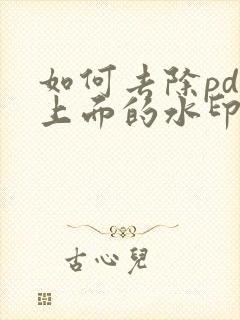 如何去除pd
上面的水印
古心儿